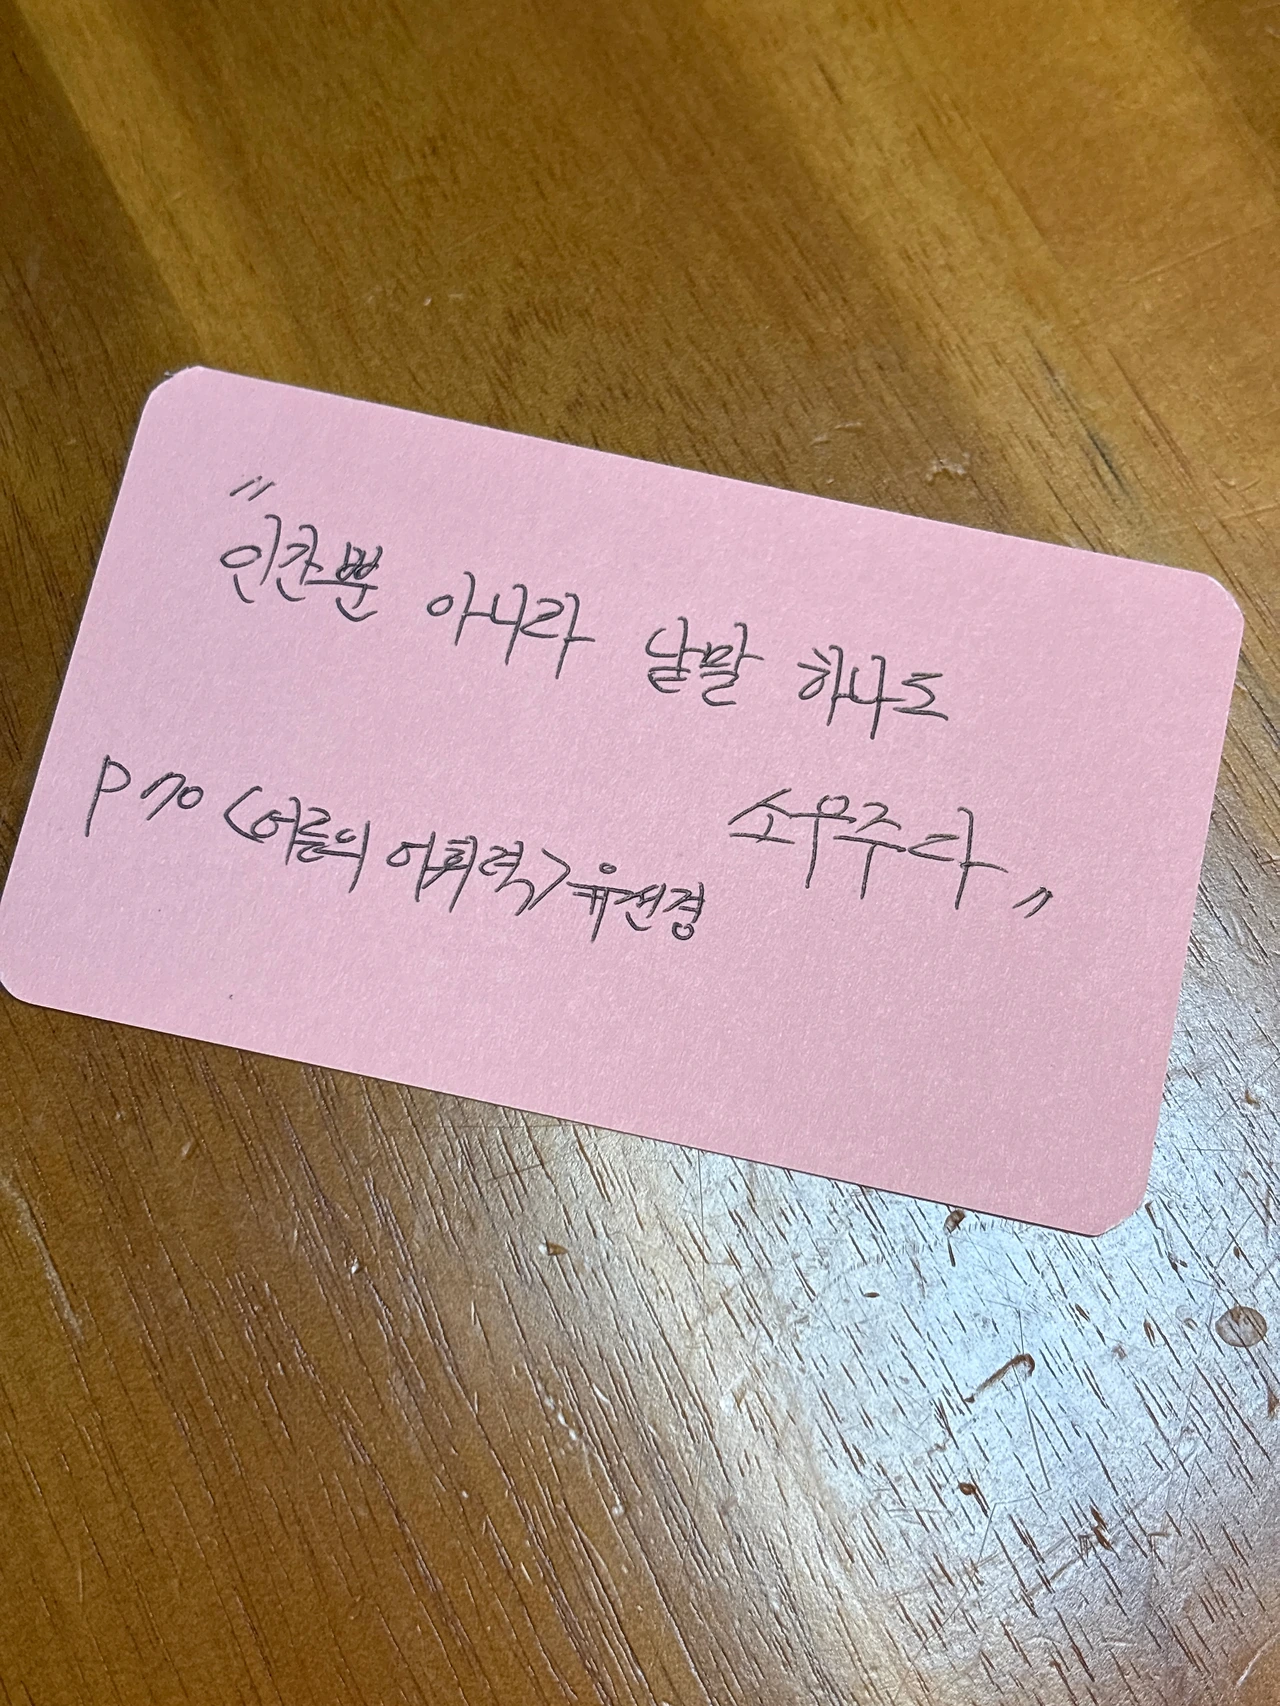 "인간뿐 아니라 낱말 하나도
소우주다"
P 70 <어른의 어휘력> 유선경